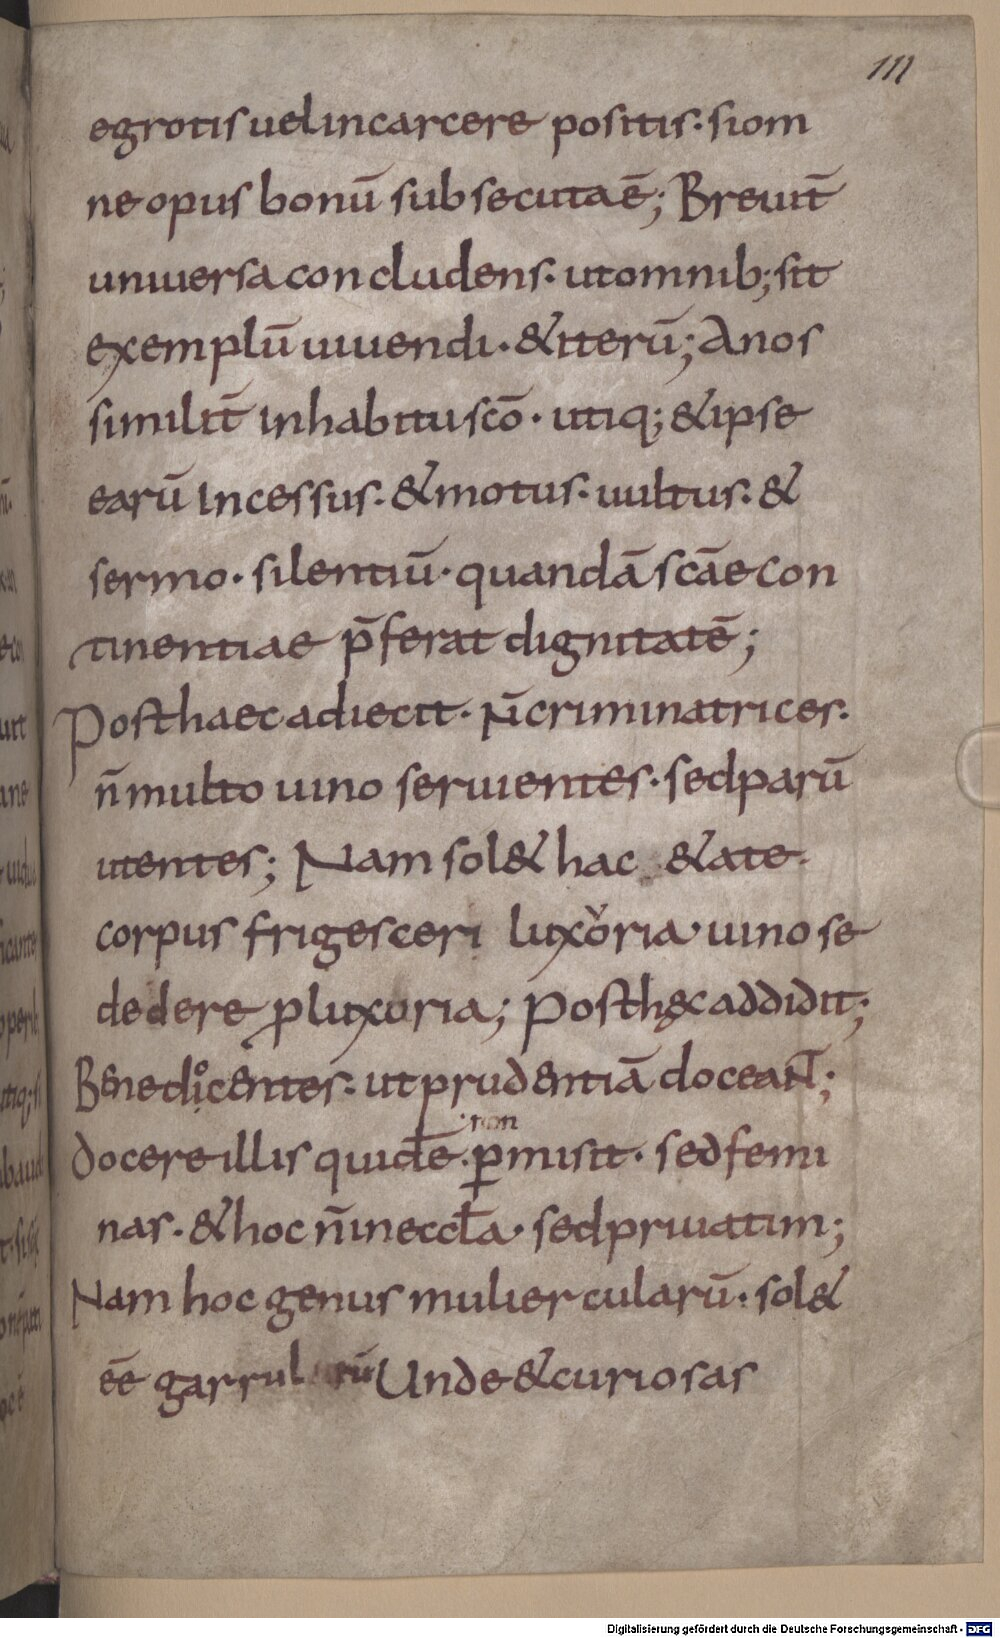 111
egrotis uel in carcere positis· si om
ne opus bonū subsecuta ē; Breuit̄
uniuersa concludens· ut omnib; sit
exemplū uiuendi· & iterū; Anos
similit̄ in habitu scō· utiq; & ipse
earū Incessus· & motus· uultus· &
sermo· silentiū· quandā scāe con
tinentiae p̄ferat dignitatē;
Post haec adiecit· N̄ criminatrices·
n̄ multo uino seruientes· sed parū
utentes; Nam sol& hac &ate·
corpus frigesceri luxoria uino se
dedere ꝓ luxuria; Post hęc addidit;
Benedicentes· ut prudentiā doceant;
non
docere illis quidē· ꝑmisit· sed femi
nas· & hoc n̄ in eccƚa· sed priuatim;
Nam hoc genus muliercularū· sol&
ēē garrul rū Unde & curiosas
Digitalisierung gefördert durch die Deutsche Forschungsgemeinschaft - DFG